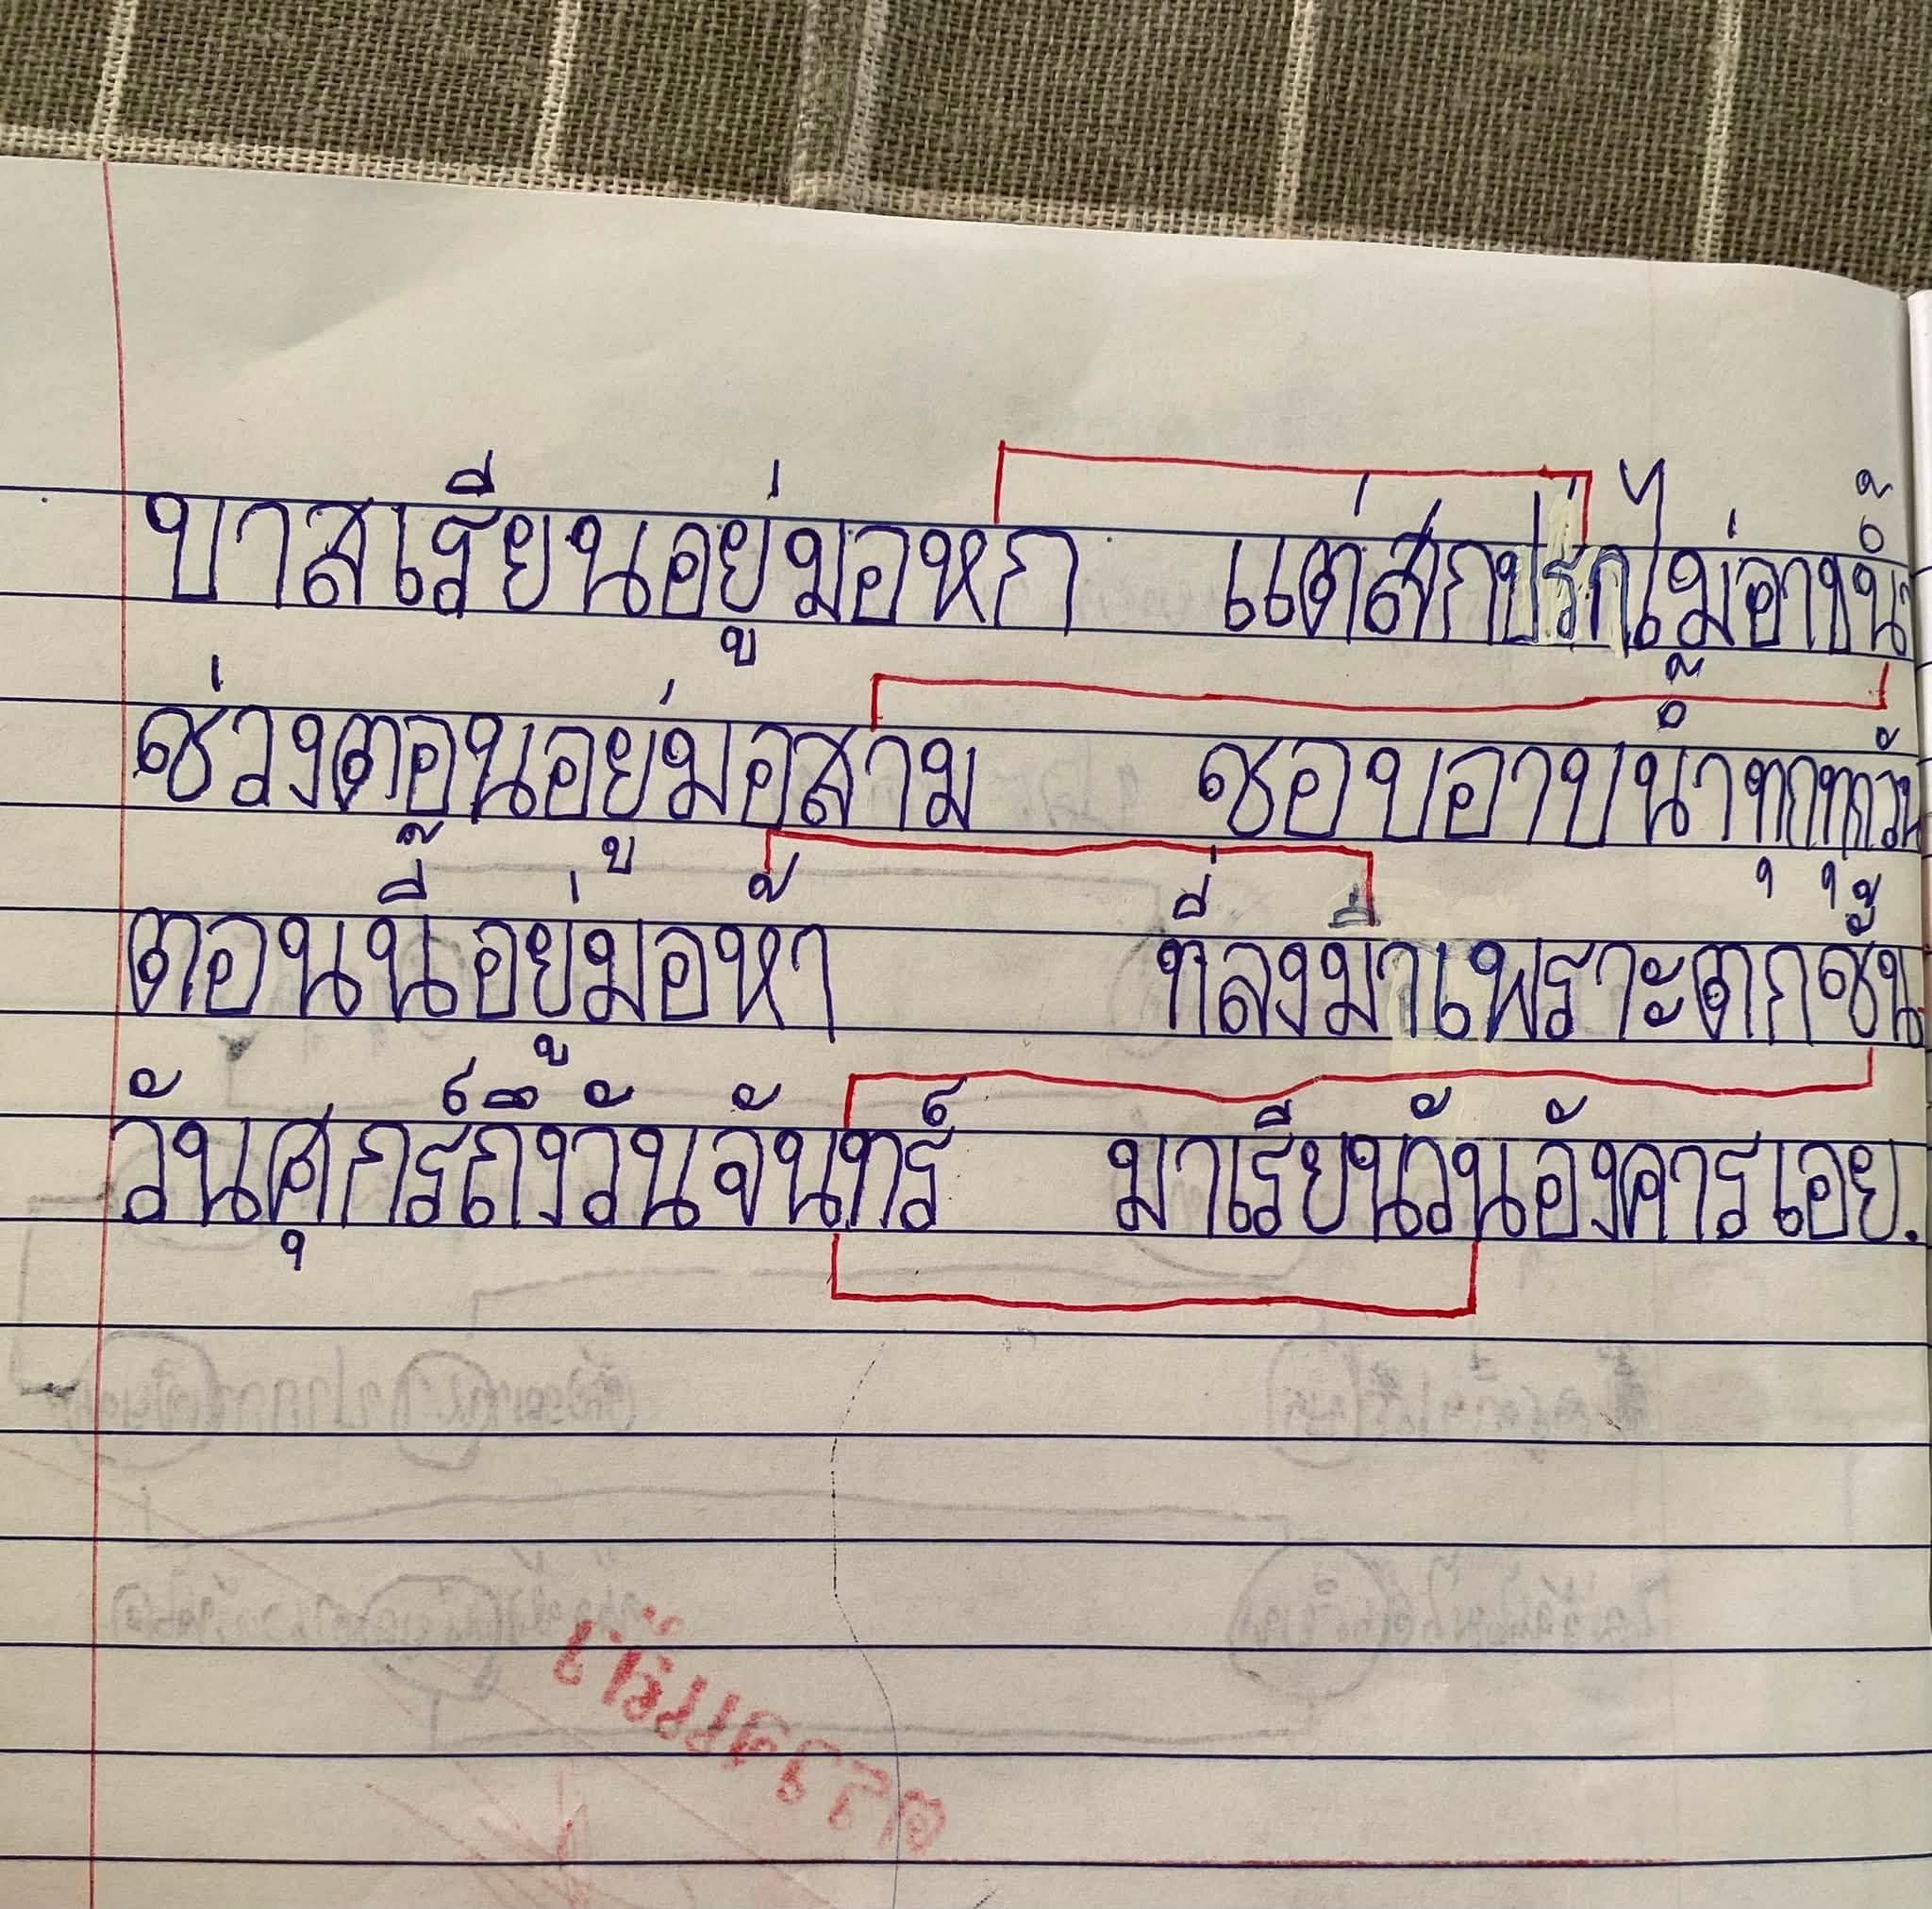 บาสเรียนอยู่มอหก แต่สกปรกไม่อาบน้ำ
ช่วงตอนอยู่มอสาม ชอบอาบน้ำทุกทุกวัน
ตอนนี้อยู่มอห้า ที่ลงมาเพราะตกชั้น
วันศุกร์ถึงวันจันทร์ มาเรียนวันอังคารเอย.
ตรวจแล้ว